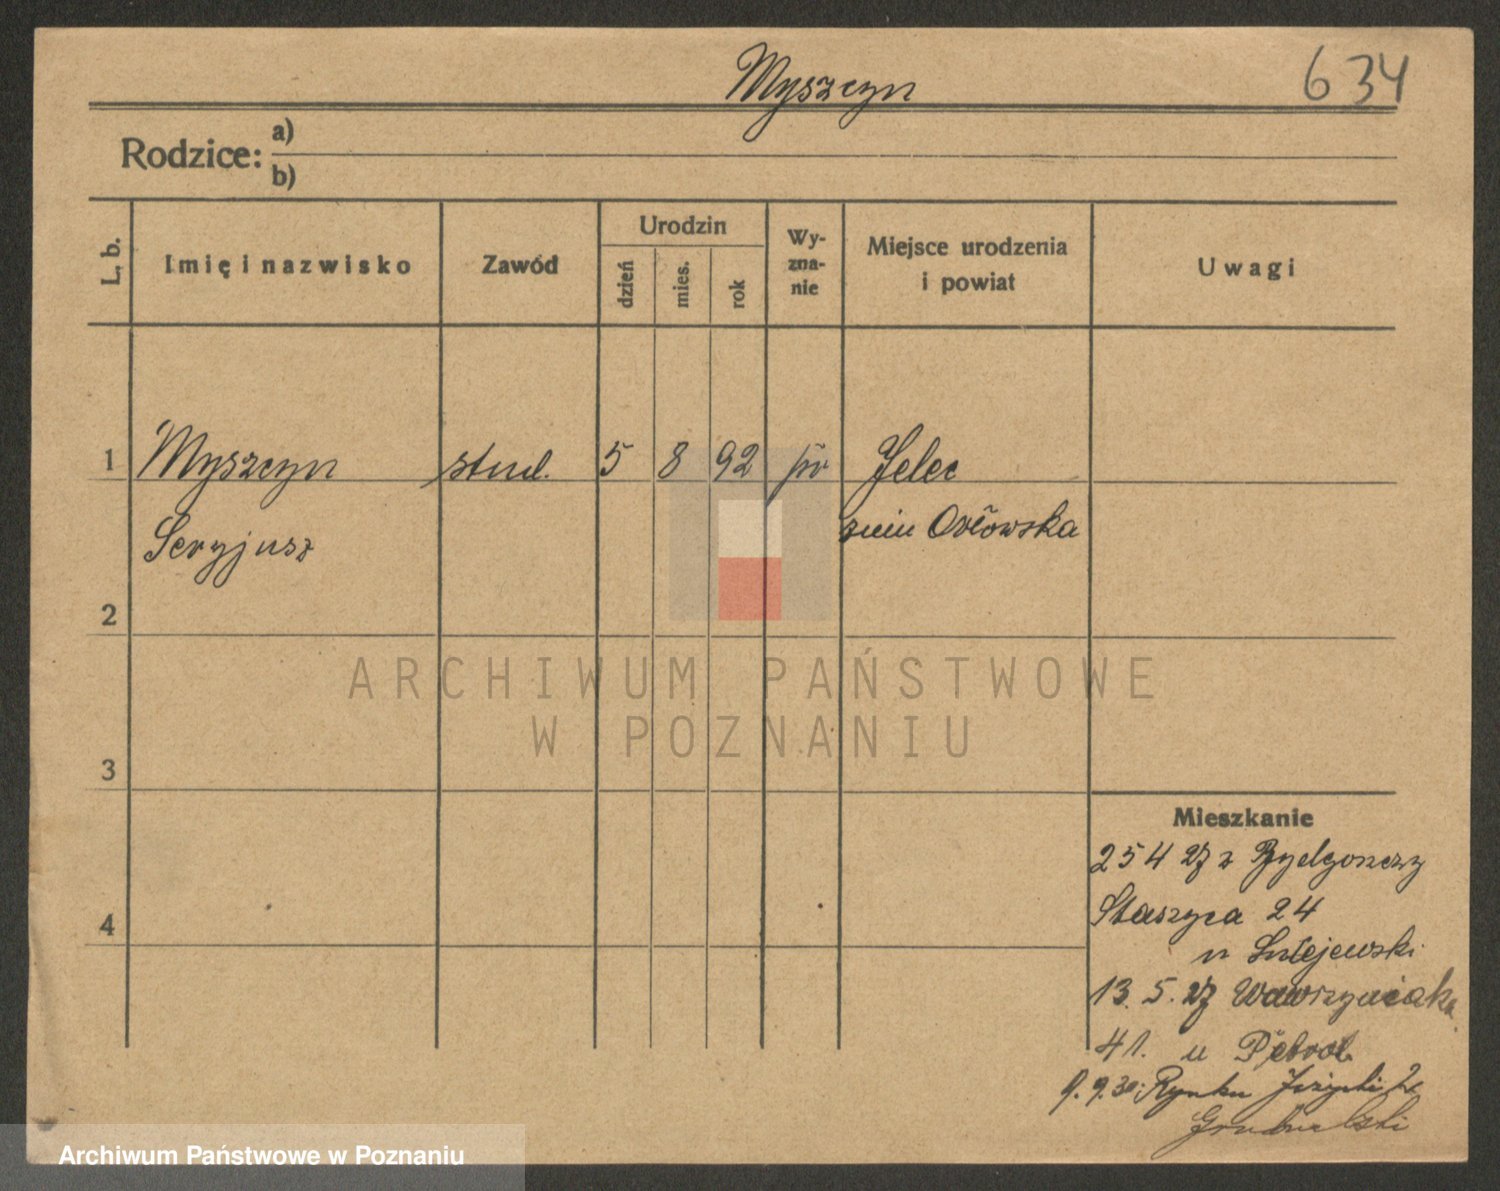 Myszczyn
634
Rodzice: a)
b)
L. b.
Imię i nazwisko
Zawód
Urodzin
dzień
mies.
rok
Wy-
zna-
nie
Miejsce urodzenia
i powiat
Uwagi
1 Myszczyn stud. 5 8 92 pr Jelec
Sergjusz
ziem Orłowska
2
3
4
Mieszkanie
25 4 27 z Bydgoszczy
Staszyca 24
u
13. 5. 27 Wawrzyniaka
41. u
9. 9. 30. Rynku Jeżycki 2
ARCHIWUM PAŃSTWOWE
W POZNANIU
Archiwum Państwowe w Poznaniu